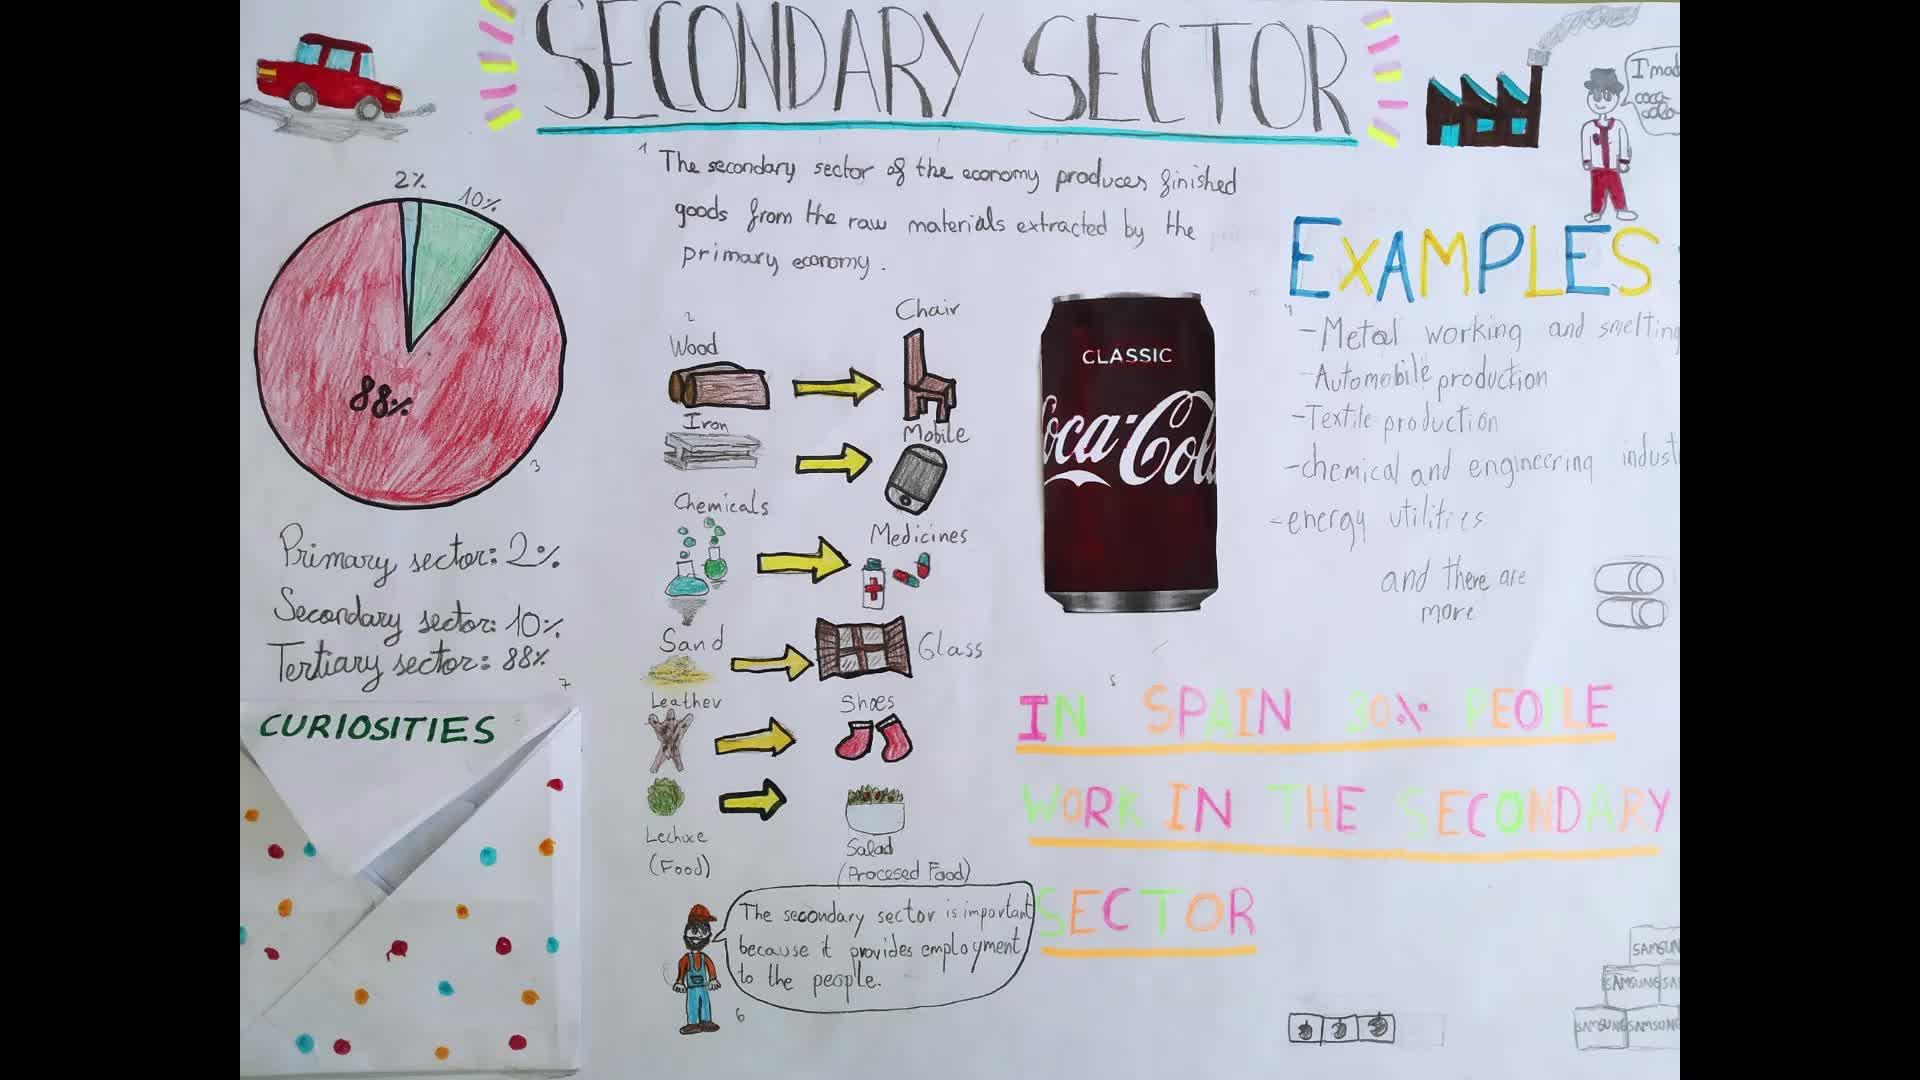 SECONDARY SECTOR
I mad
coca-
cola
1 The secondary sector of the economy produces finished
goods from the raw materials extracted by the
primary economy.
2%
10%
88%
3
Primary sector: 2%
Secondary sector: 10%
Tertiary sector: 88%
7
CURIOSITIES
2
Wood
Chair
Iron
Mobile
Chemicals
Medicines
Sand
Glass
Leather
Shoes
Lechuce
(Food)
Salad
(Procesed Food)
The secondary sector is important
because it provides employment
to the people.
6
CLASSIC
Coca-Cola
EXAMPLES
4
-Metal working and smelting
-Automobile production
-Textile production
-chemical and engineering indust
-energy utilities
and there are
more
5
IN SPAIN 30% PEOPLE
WORK IN THE SECONDARY
SECTOR
SAMSUN
SAMSUNG SA
SAMSUNG SAMSUNG